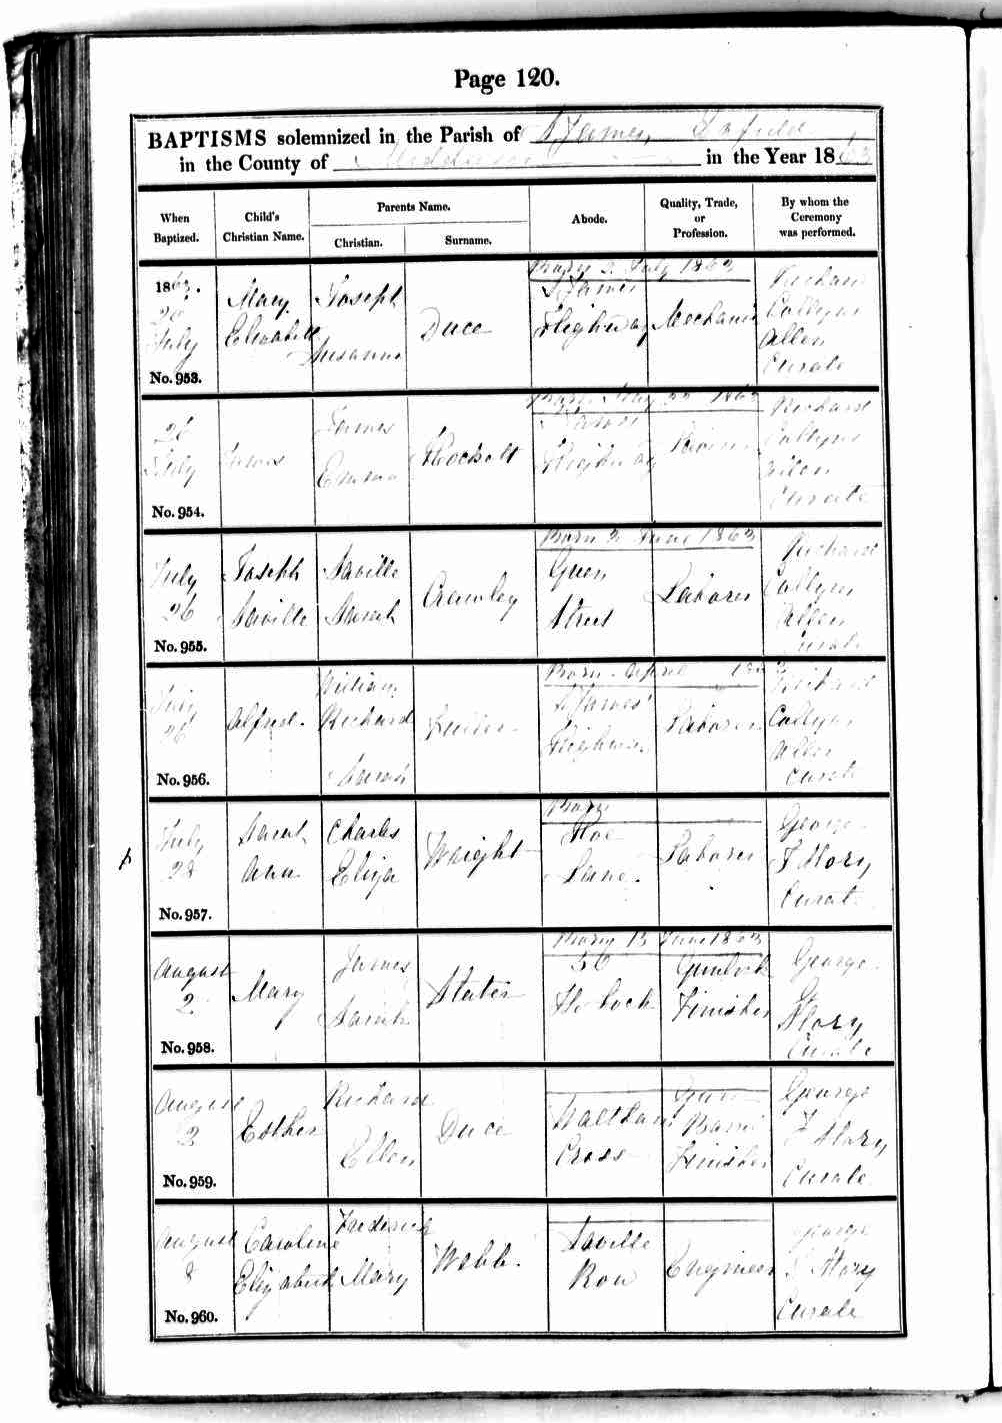 Page 120.
BAPTISMS solemnized in the Parish of St James, Enfield
in the County of Middlesex in the Year 1863
When Baptized.
Child's Christian Name.
Parents Name.
Christian.
Surname.
Abode.
Quality, Trade, or Profession.
By whom the Ceremony was performed.
1863.
July
No. 953.
Mary
Elizabeth
Joseph
Susanna
Duce
Born 2 July 1863
St James
Highway
Mechanic
Richard
Collyer
Allen
Curate
26
July
No. 954.
James
James
Emma
Born May 1863
Highway
Richard
Collyer
Allen
Curate
July
26
No. 955.
Joseph
Saville
Saville
Sarah
Crawley
Born 2 June 1863
Green
Street
Laborer
Richard
Collyer
Allen
Curate
July
26
No. 956.
Alfred
William
Richard
Sarah
Born April
St James'
Highway
Laborer
Richard
Collyer
Allen
Curate
July
28
No. 957.
Sarah
Ann
Charles
Eliza
Wright
Born
Hoe
Lane.
Laborer
George
F Story
Curate
August
2
No. 958.
Mary
James
Sarah
Slater
Born 13 June 1863
56
The Lock
Gunlock
Finisher
George
Story
Curate
August
2
No. 959.
Esther
Richard
Ellen
Duce
Waltham
Cross
Finisher
George
F Story
Curate
August
8
No. 960.
Caroline
Elizabeth
Frederick
Mary
Webb.
Saville
Row
Engineer
George
F Story
Curate